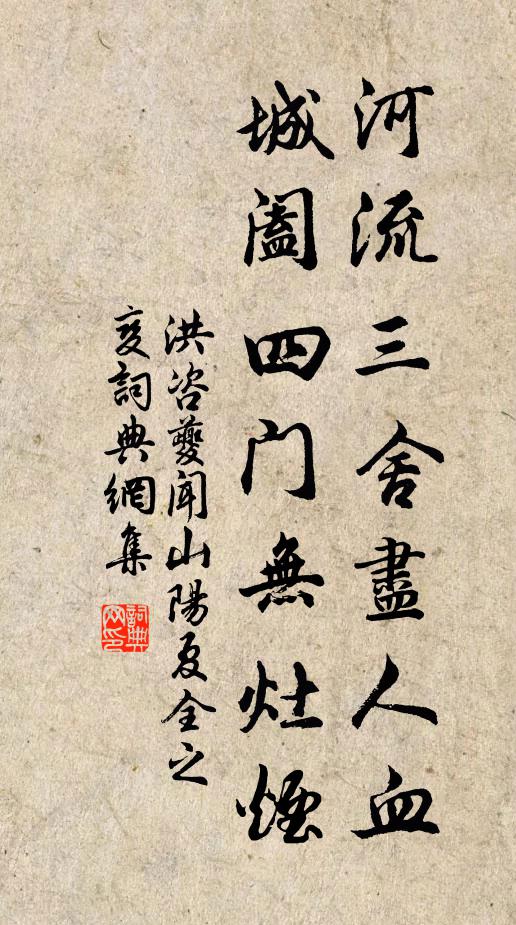 河流三舍盡人血
城闔四门無灶煙
洪咨夔聞山陽夏全之
变詞典網集
詞典網印